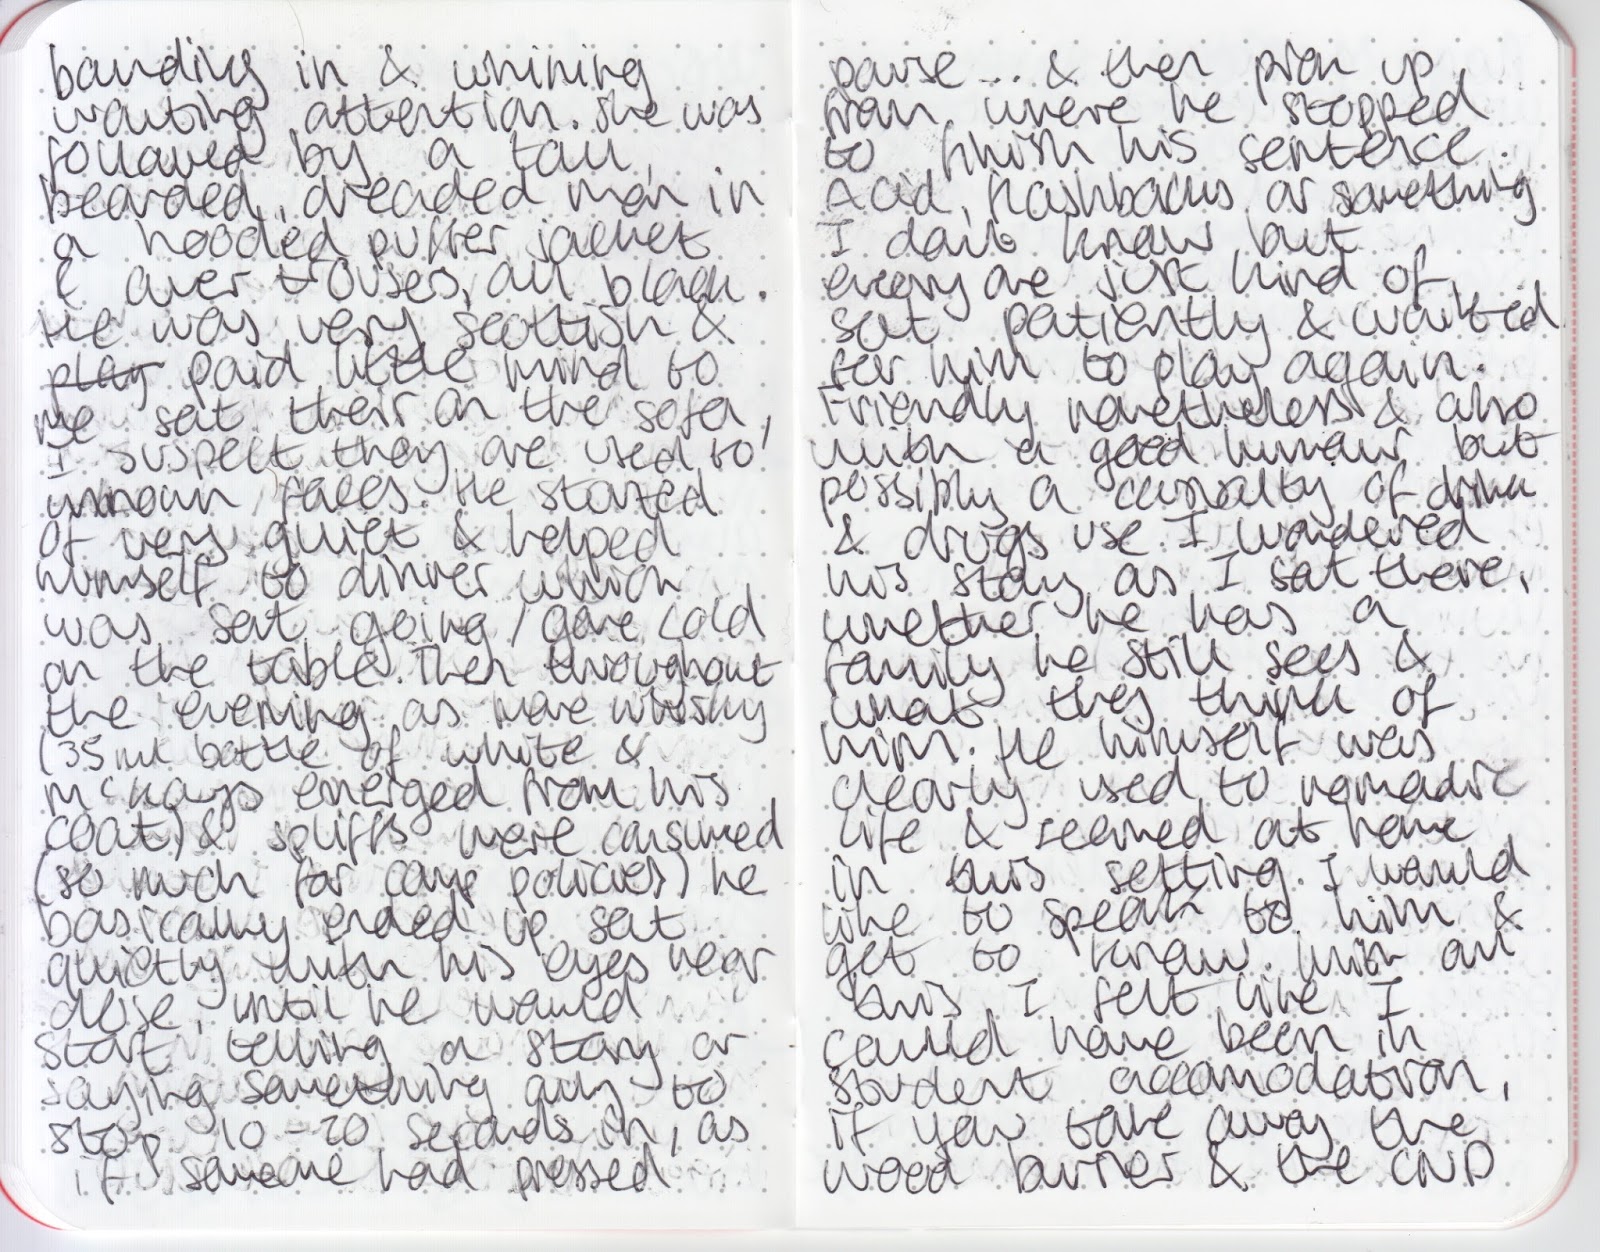 bounding in & whining
wanting attention. She was
followed by a tall,
bearded, dreaded man in
a hooded puffer jacket
& over trouses, all black.
He was very scottish &
play paid little mind to
me sat their on the sofa,
I suspect they are used to
unknown faces. He started
of very quiet & helped
himself to dinner which
was sat going/gone cold
on the table. Then throughout
the evening as more whisky
(35ml bottle of white &
mckays emerged from his
coat) & spliffs were consumed
(so much for camp policies) he
basically ended up sat
quietly with his eyes near
close, until he would
start telling a story or
saying something only to
stop 10-20 seconds in, as
if someone had pressed
pause... & then pick up
from where he stopped
to finish his sentence.
Acid flashbacks or something
I don't know but
everyone just kind of
sat patiently & waited
for him to play again.
Friendly nonetheless & also
with a good humour but
possibly a casualty of drink
& drugs use. I wondered
his story as I sat there,
whether he has a
family he still sees &
what they think of
him. He himself was
clearly used to nomadic
life & seemed at home
in this setting. I would
like to speak to him &
get to know. With all
this I felt like I
could have been in
student accomodation,
if you take away the
wood burner & the CND